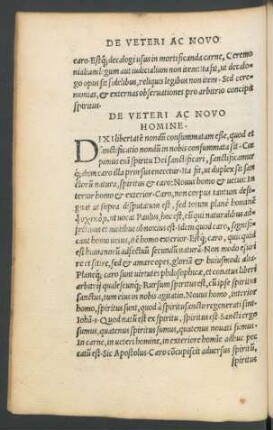 DE VETERI AC NOVO
caro. Estq́; decalogi usus in mortificanda carne, Ceremo
nialium legum aut iudicialium non item. Ita fit, ut decalo
go opus sit fidelibus, reliquis legibus non item. Sed cere
monias, & externas observationes pro arbitrio concipit
spiritus.
DE VETERI AC NOVO
HOMINE.
DIXI libertatē nondū consummatam esse, quod et
sanctificatio nondū in nobis consummata sit. Coe
pimus enī spiritu Dei sanctificari, sanctificamur
q́; dum caro illa prorsus enecetur. Ita fit, ut duplex sit san
ctorū natura, spiritus & caro: Novus homo & vetus: In
terior homo & exterior. Caro, non corpus tantum desi
gnat ut supra disputatum est, sed totum hominem, quatenus
ψυχικὸν, ut vocat Paulus, hoc est, eū qui naturalibus af
fectibus et motibus obnoxius est. Idem quod caro, signifi
cant homo vetus, et homo exterior. Estq́; caro, quicquid
est humanorū adfectuū secundū naturā. Non modo esuri
re et sitire, sed & amare opes, gloriā & huiusmodi alia
Planeq́; caro sunt virtutes philosophicæ, et conatus liberi
arbitrij qualescunq́;. Rursum spiritus est, cū ipse spiritus
sanctus, tum eius in nobis agitatio. Novus homo, interior
homo, spiritus sunt, quod à spiritu sancto regenerati sint
Iohā. 3. Quod natū est ex spiritu, spiritus est. Sancti ergo
sumus, quatenus spiritus sumus, quatenus novati sumus.
In carne, in veteri homine, in exteriore homine adhuc pec
catū est. Sic Apostolus. Caro cōcupiscit adversus spiritū,
spiritus